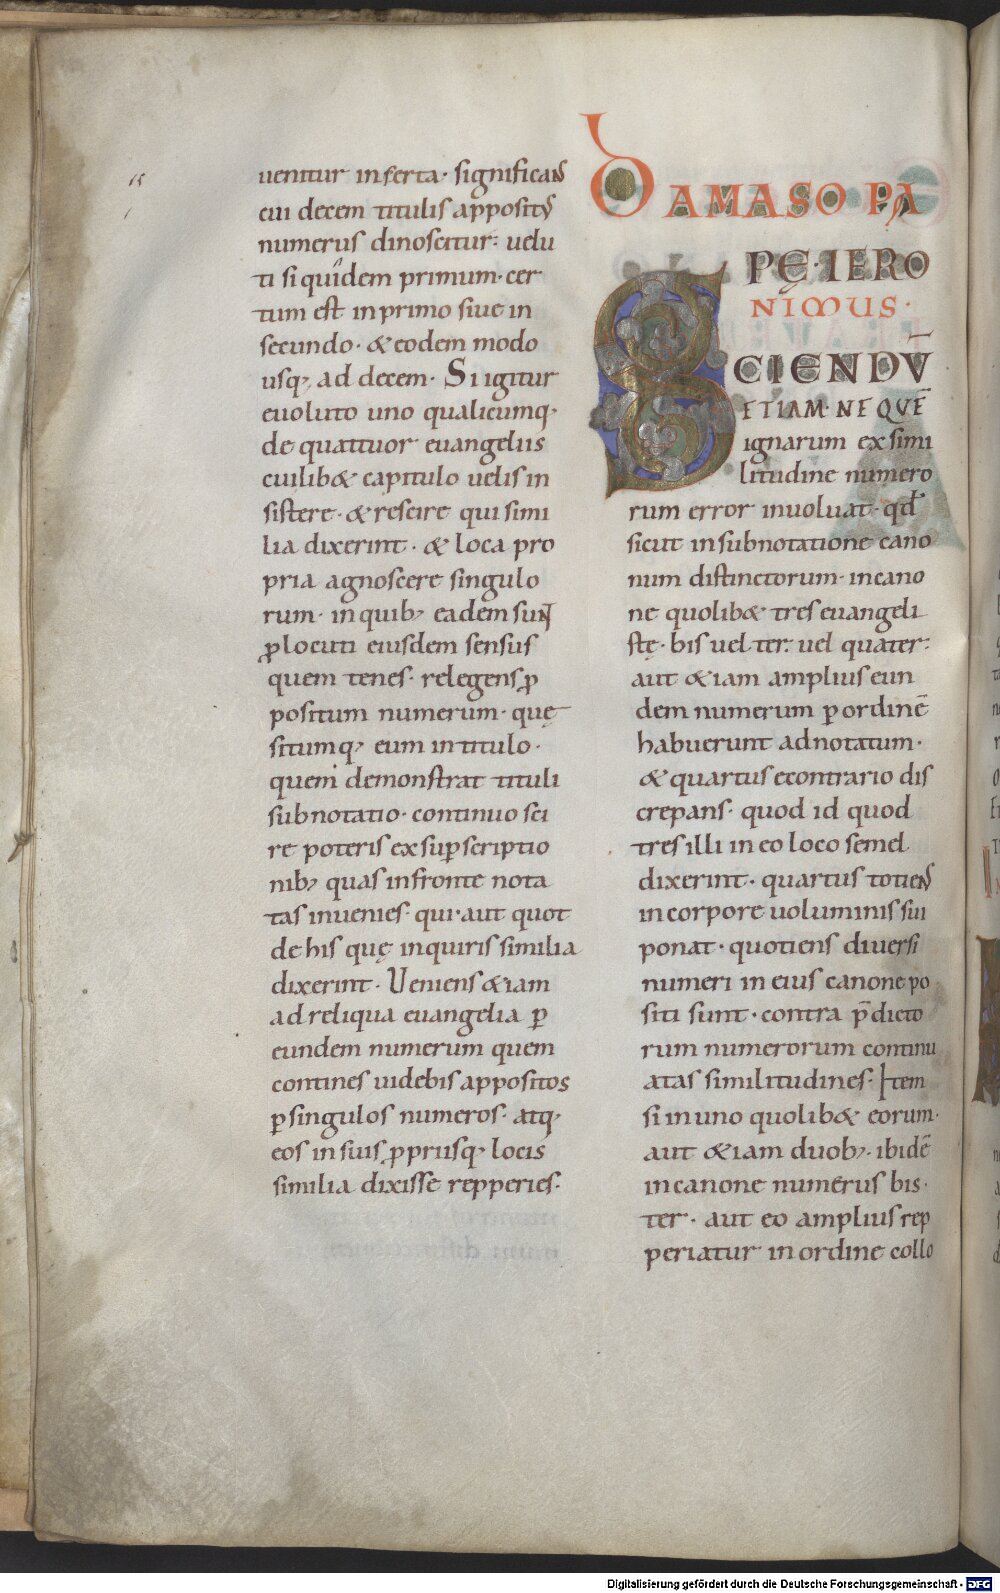 uenitur inserta· significans
eui decem titulis appositus
numerus dinoscitur: uelu
ti si quidem primum· cer
tum est in primo siue in
secundo· & eodem modo
usq; ad decem· Si igitur
euoluto uno qualicumq·
de quattuor euangeliis
cuilib& capitulo uelis in
sistere· & rescire qui simi
lia dixerint· & loca pro
pria agnoscere singulo
rum· in quib; eadem sunt
ꝓlocuti eiusdem sensus
quem tenes· relegens ꝓ
positum numerum· quę
situmq; eum in titulo·
quem demonstrat tituli
subnotatio· continuo sci
re poteris ex suꝑscriptio
nib; quas in fronte nota
tas inuenies· qui aut quot
de his quę inquiris similia
dixerint· Veniens &iam
ad reliqua euangelia ꝑ
eundem numerum quem
contines uidebis appositos
ꝑ singulos numeros· atq;
eos in suis ꝓpriisq; locis
similia dixisse repperies·
DAMASO PA
PĘ· IERO
NIMUS·
SCIENDŪ
ETIAM· NE QUĒ
ignarum ex simi
litudine numero
rum error inuoluat· qđ
sicut in subnotatione cano
num distinctorum· in cano
ne quolib& tres euangeli
stę· bis uel· ter: uel quater:
aut &iam amplius eun
dem numerum ꝑ ordinē
habuerunt adnotatum·
& quartus econtrario dis
crepans· quod id quod
tres illi in eo loco semel
dixerint· quartus totiens
in corpore uoluminis sui
ponat· quotiens diuersi
numeri in eius canone po
siti sunt· contra p̄dicto
rum numerorum continu
atas similitudines· Item
si in uno quolib& eorum·
aut &iam duob;· ibidē
in canone numerus bis·
ter· aut eo amplius rep
periatur in ordine collo
Digitalisierung gefördert durch die Deutsche Forschungsgemeinschaft - DFG